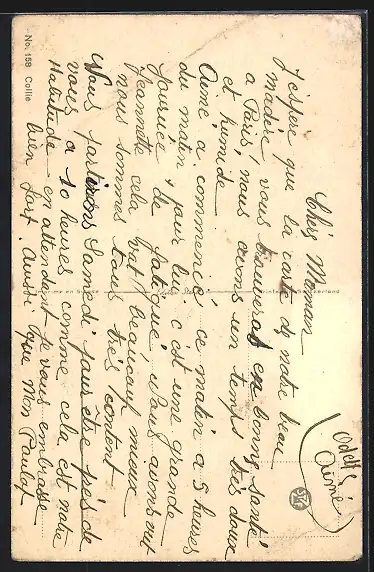 Chèz Maman
J'espère que la carte de notre beau
madère vous trouveras en bonne santé
a Paris, nous avons un temps très doux
et humide
Aimé a commencé, ce matin a 5 heures
du matin, pour lui c'est une grande
journée de fatigué, nous avons mit
Jeannette cela vat beaucoup mieux
nous sommes tous très content
Nous partirons Samedi pour être près de
vous a 10 heures comme cela est notre
Habitude en attendant je vous embrasse
bien fort. Aussi que Mon
Odette
Aimé
No. 158 Collie